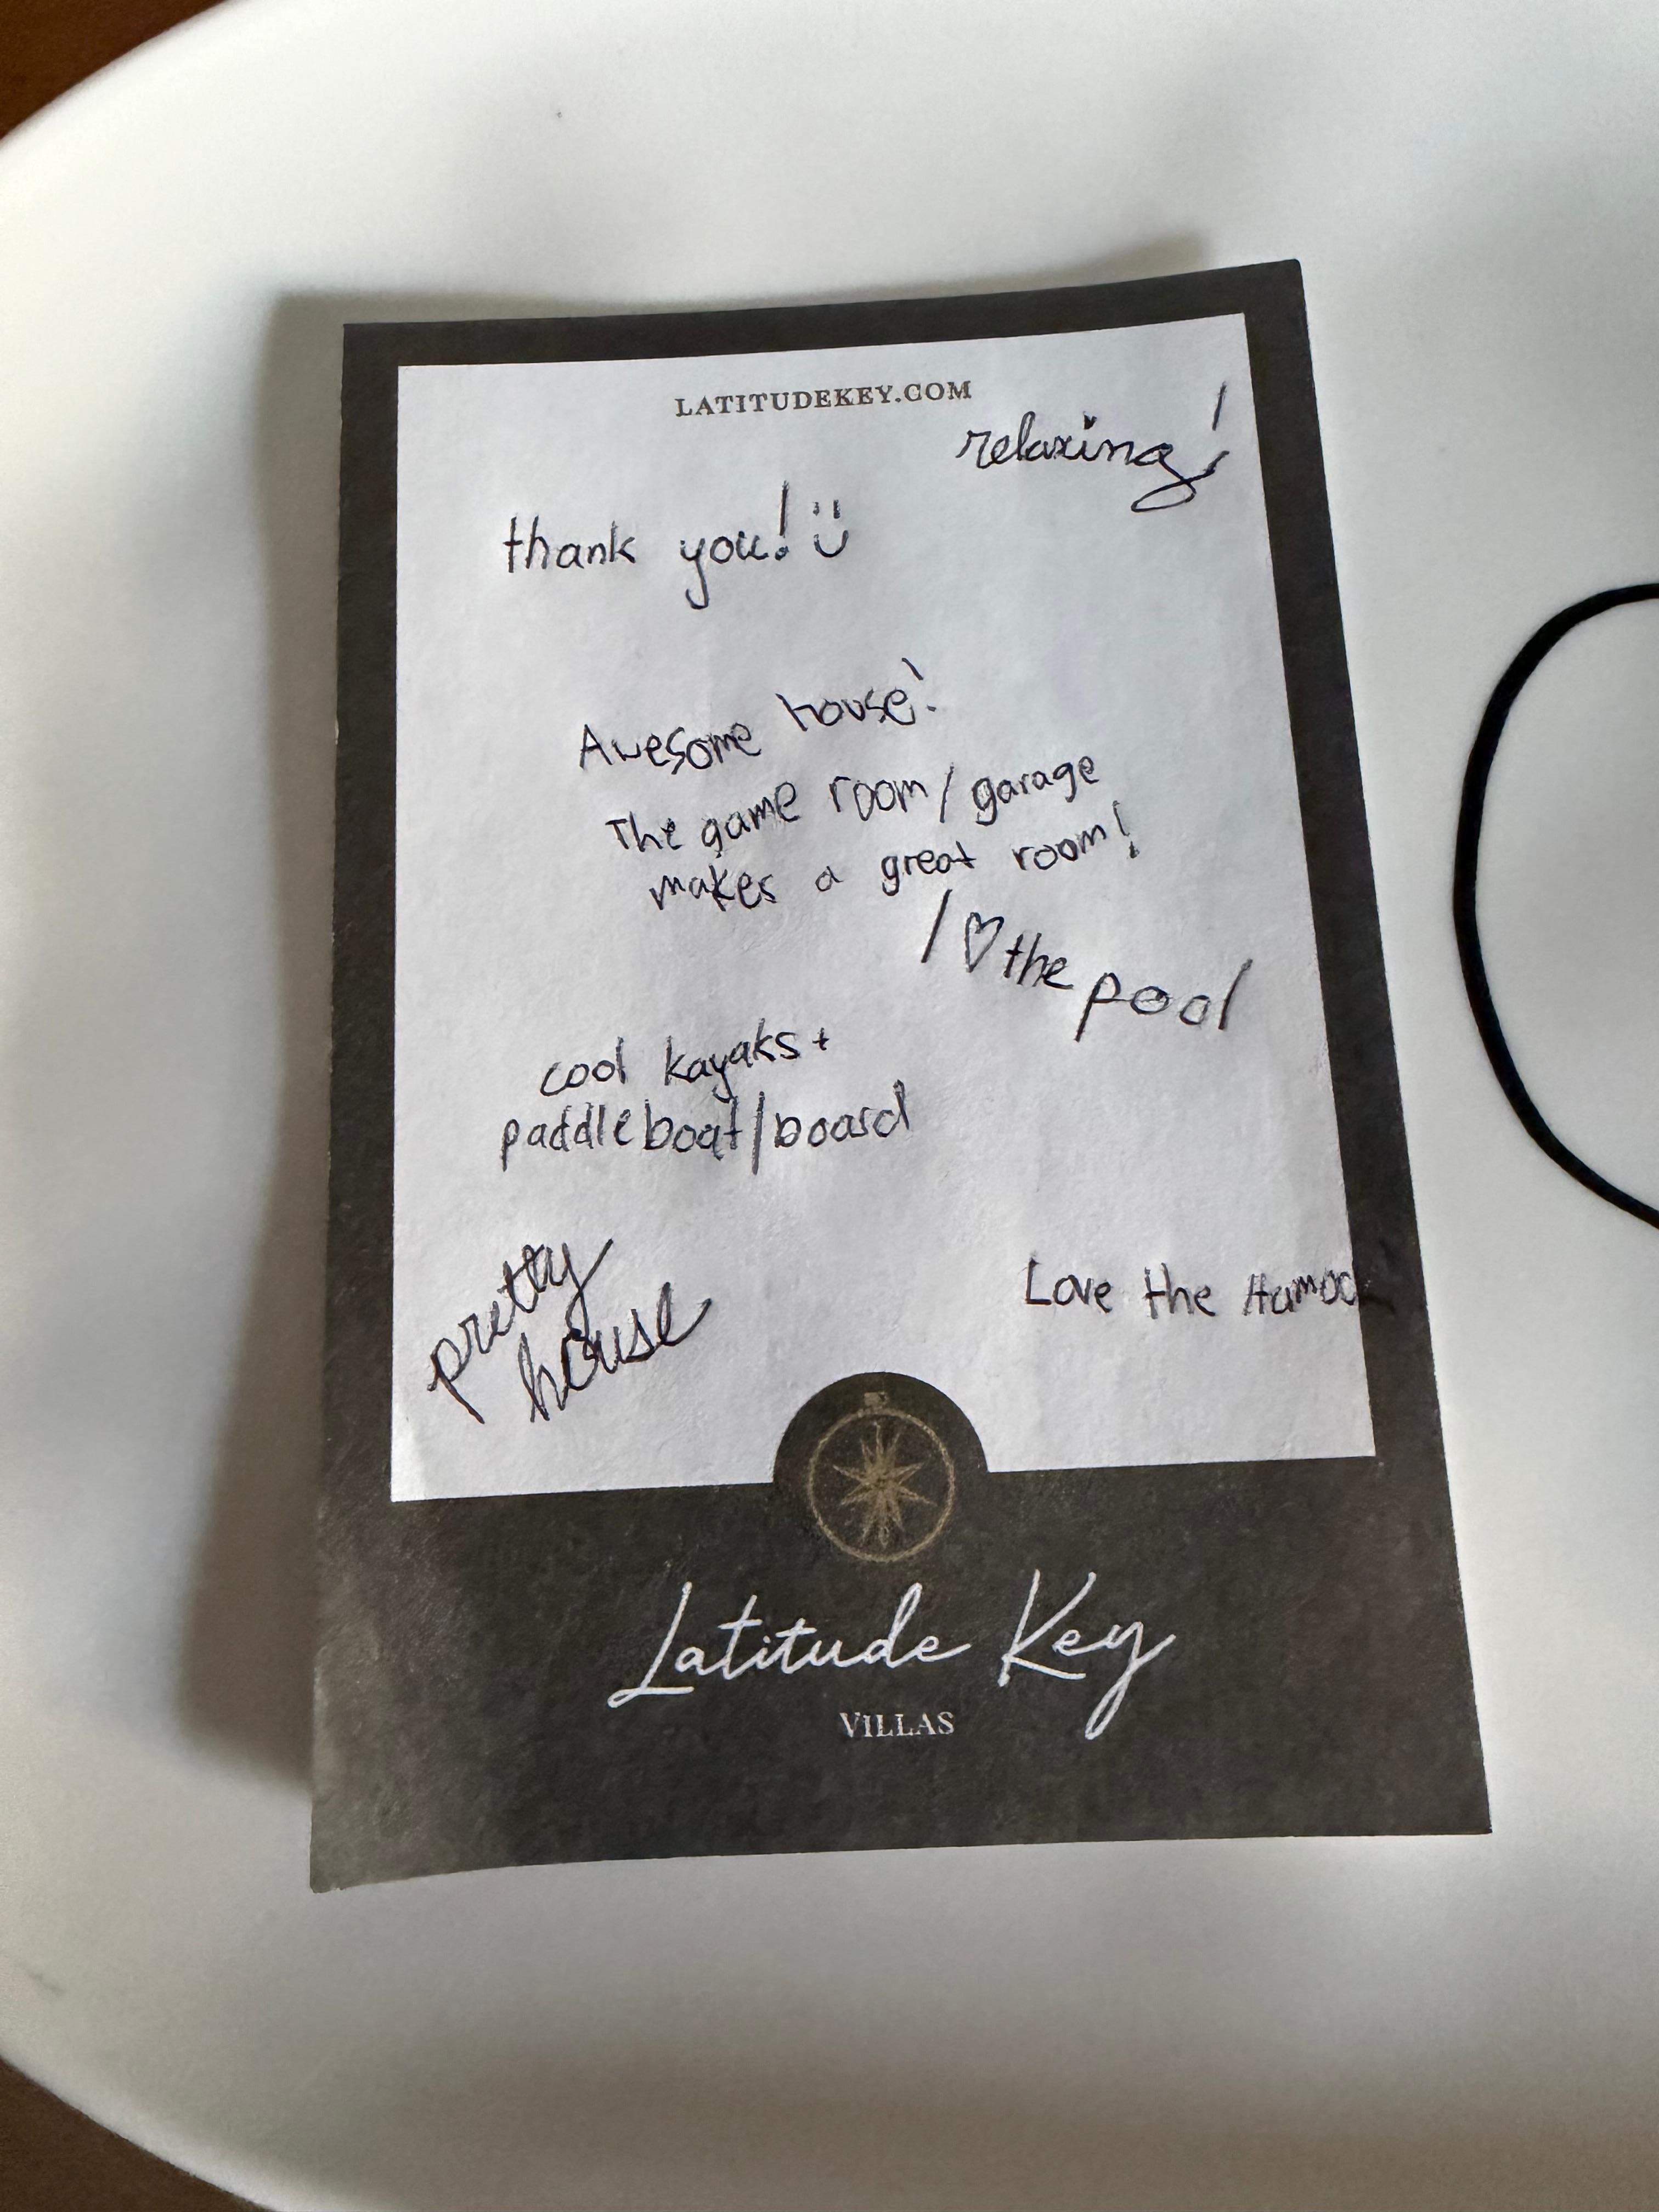 LATITUDEKEY.COM
relaxing!
thank you! :)
Awesome house!
The game room/garage
makes a great room!
I ♡ the pool
cool kayaks +
paddle boat/board
pretty
house
Love the Hamock
Latitude Key
VILLAS